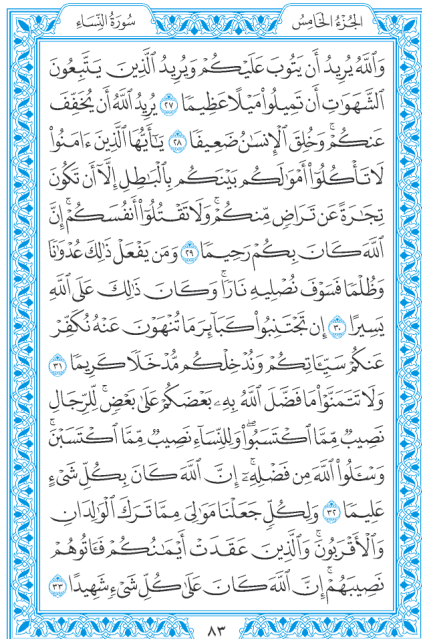 الجُزْءُ الخَامِسُ سُورَةُ النِّسَاءِ
وَٱللَّهُ يُرِيدُ أَن يَتُوبَ عَلَيْكُمْ وَيُرِيدُ ٱلَّذِينَ يَتَّبِعُونَ
ٱلشَّهَوَٰتِ أَن تَمِيلُوا۟ مَيْلًا عَظِيمًا ٢٧ يُرِيدُ ٱللَّهُ أَن يُخَفِّفَ
عَنكُمْ ۚ وَخُلِقَ ٱلْإِنسَٰنُ ضَعِيفًا ٢٨ يَٰٓأَيُّهَا ٱلَّذِينَ ءَامَنُوا۟
لَا تَأْكُلُوٓا۟ أَمْوَٰلَكُم بَيْنَكُم بِٱلْبَٰطِلِ إِلَّآ أَن تَكُونَ
تِجَٰرَةً عَن تَرَاضٍ مِّنكُمْ ۚ وَلَا تَقْتُلُوٓا۟ أَنفُسَكُمْ ۚ إِنَّ
ٱللَّهَ كَانَ بِكُمْ رَحِيمًا ٢٩ وَمَن يَفْعَلْ ذَٰلِكَ عُدْوَٰنًا
وَظُلْمًا فَسَوْفَ نُصْلِيهِ نَارًا ۚ وَكَانَ ذَٰلِكَ عَلَى ٱللَّهِ
يَسِيرًا ٣٠ إِن تَجْتَنِبُوا۟ كَبَآئِرَ مَا تُنْهَوْنَ عَنْهُ نُكَفِّرْ
عَنكُمْ سَيِّـَٔاتِكُمْ وَنُدْخِلْكُم مُّدْخَلًا كَرِيمًا ٣١
وَلَا تَتَمَنَّوْا۟ مَا فَضَّلَ ٱللَّهُ بِهِۦ بَعْضَكُمْ عَلَىٰ بَعْضٍ ۚ لِّلرِّجَالِ
نَصِيبٌ مِّمَّا ٱكْتَسَبُوا۟ ۖ وَلِلنِّسَآءِ نَصِيبٌ مِّمَّا ٱكْتَسَبْنَ ۚ
وَسْـَٔلُوا۟ ٱللَّهَ مِن فَضْلِهِۦٓ ۗ إِنَّ ٱللَّهَ كَانَ بِكُلِّ شَىْءٍ
عَلِيمًا ٣٢ وَلِكُلٍّ جَعَلْنَا مَوَٰلِىَ مِمَّا تَرَكَ ٱلْوَٰلِدَانِ
وَٱلْأَقْرَبُونَ ۚ وَٱلَّذِينَ عَقَدَتْ أَيْمَٰنُكُمْ فَـَٔاتُوهُمْ
نَصِيبَهُمْ ۚ إِنَّ ٱللَّهَ كَانَ عَلَىٰ كُلِّ شَىْءٍ شَهِيدًا ٣٣
٨٣